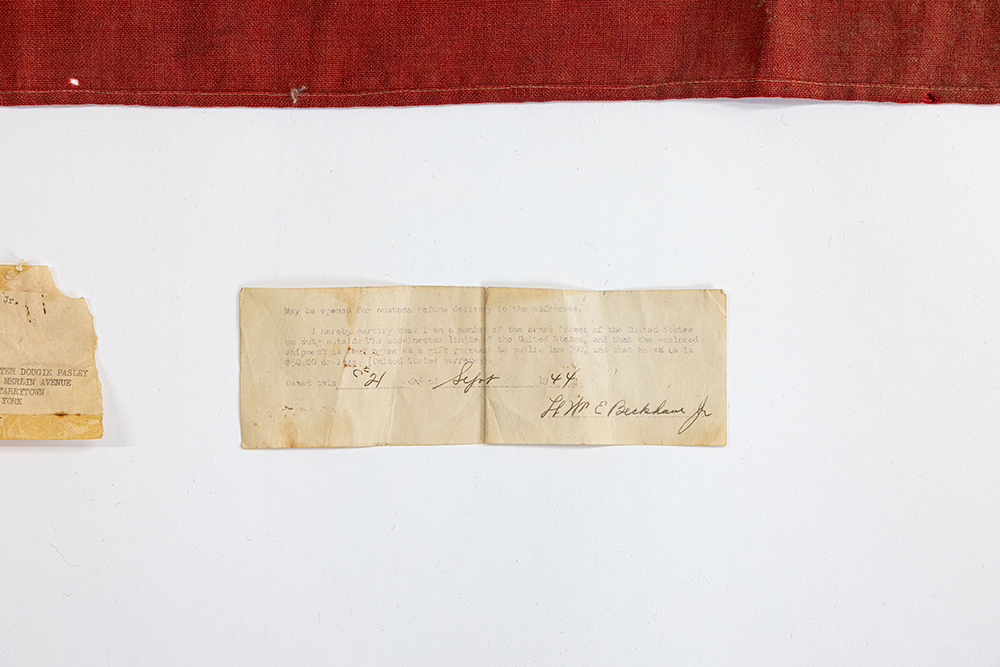 Jr.
TER DOUGIE PASLEY
MERLIN AVENUE
TARRYTOWN
YORK
May be opened for customs before delivery to the addressee.
I hereby certify that I am a member of the armed forces of the United States
on duty outside the continental limits of the United States, and that the enclosed
shipment is a gift pursuant to public law 790, and that
$50.00 or United States
Dated this 21 day of Sept 1944
Lt Wm E Beckham Jr